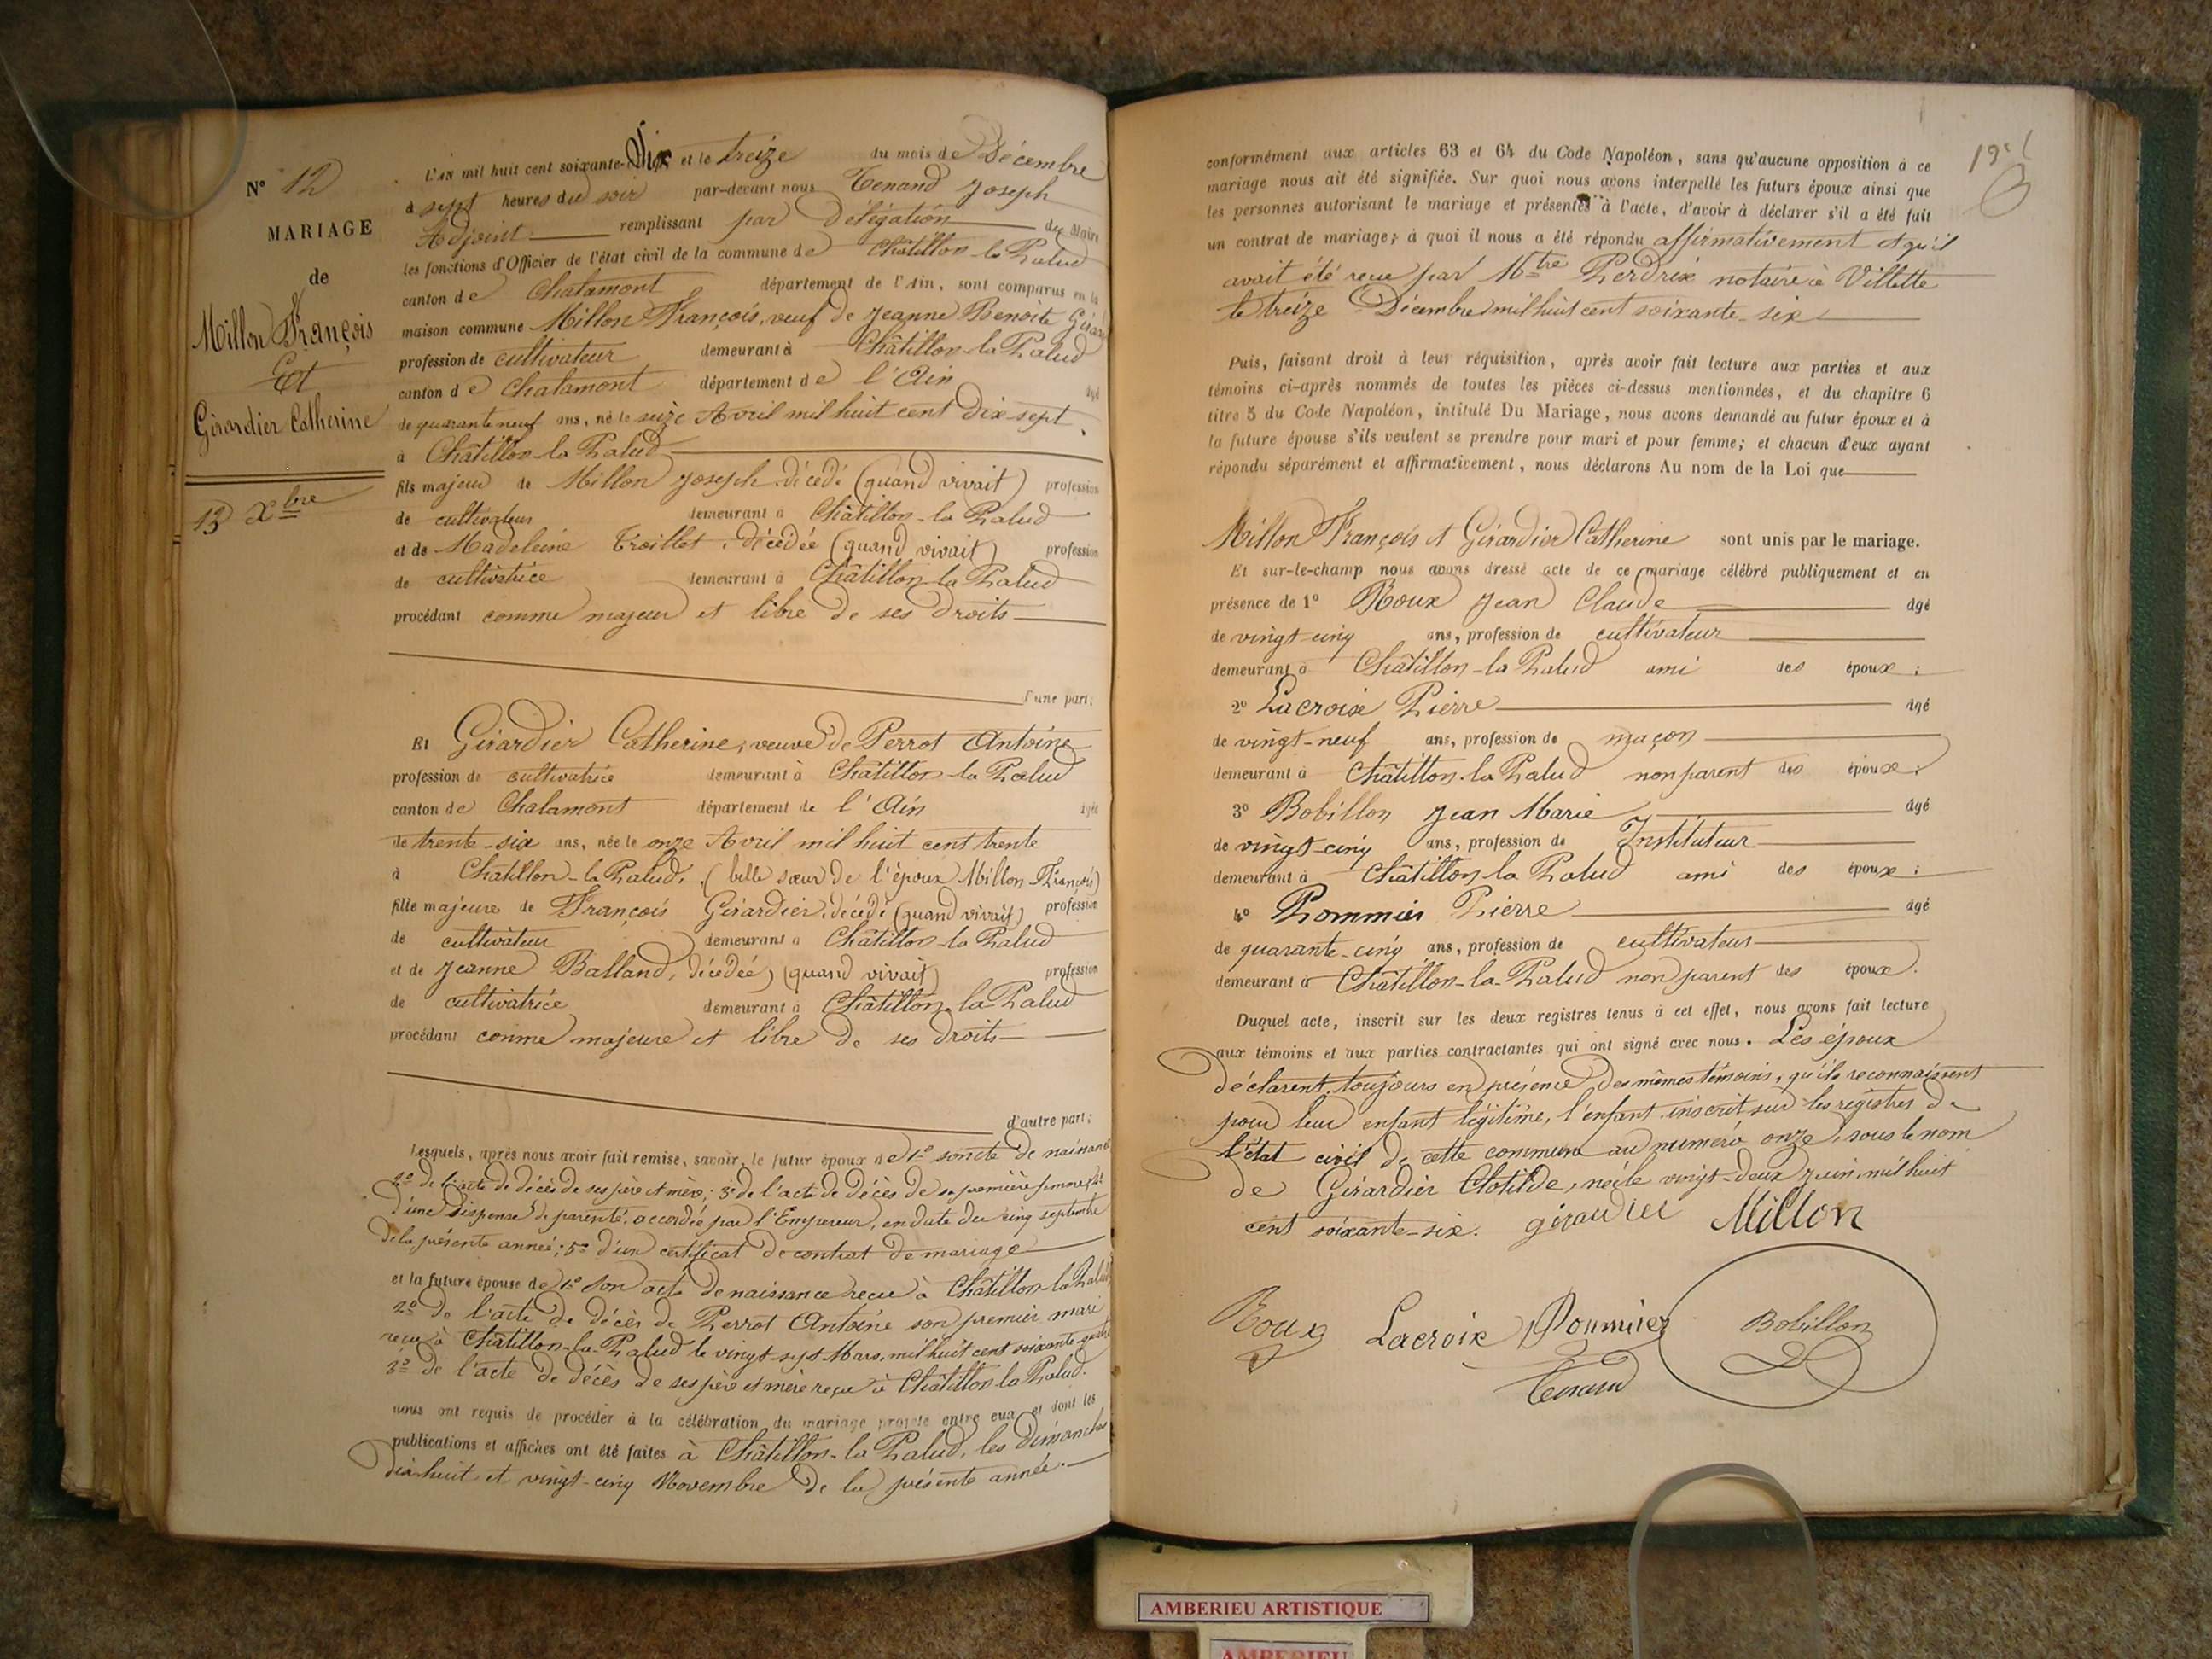 N° 12
MARIAGE
de
Millon François
Et
Girardier Catherine
13 Xbre
L'AN mil huit cent soixante-Six et le treize du mois de Décembre
à sept heures du soir par-devant nous Tenand Joseph
Adjoint remplissant par Délégation du Maire
les fonctions d'Officier de l'état civil de la commune de Châtillon-la-Palud
canton de Chalamont département de l'Ain, sont comparus en la
maison commune Millon François, veuf de Jeanne Benoite
profession de cultivateur demeurant à Châtillon-la-Palud
canton de Chalamont département de l'Ain âgé
de quarante neuf ans, né le seize Avril mil huit cent dix-sept
à Châtillon-la-Palud
fils majeur de Millon Joseph décédé (quand vivait) profession
de cultivateur demeurant à Châtillon-la-Palud
et de Madeleine Troillet, décédée (quand vivait) profession
de cultivatrice demeurant à Châtillon-la-Palud
procédant comme majeur et libre de ses droits
d'une part;
Et Girardier Catherine, veuve de Perrot Antoine
profession de cultivatrice demeurant à Châtillon-la-Palud
canton de Chalamont département de l'Ain âgée
de trente-six ans, née le onze Avril mil huit cent trente
à Châtillon-la-Palud, (belle sœur de l'époux Millon François)
fille majeure de François Girardier, décédé (quand vivait) profession
de cultivateur demeurant à Châtillon-la-Palud
et de Jeanne Balland, décédée, (quand vivait) profession
de cultivatrice demeurant à Châtillon-la-Palud
procédant comme majeure et libre de ses droits
d'autre part;
Lesquels, après nous avoir fait remise, savoir, le futur époux de 1° son acte de naissance
2° de l'acte de décès de ses père et mère; 3° de l'acte de décès de sa première femme; 4°
d'une dispense de parenté, accordée par l'Empereur, en date du cinq septembre
de la présente année; 5° d'un certificat de contrat de mariage
et la future épouse de 1° son acte de naissance reçu à Châtillon-la-Palud
2° de l'acte de décès de Perrot Antoine son premier mari
reçu à Châtillon-la-Palud le vingt-sept Mars, mil huit cent soixante-quatre
3° de l'acte de décès de ses père et mère reçu à Châtillon-la-Palud.
nous ont requis de procéder à la célébration du mariage projeté entre eux et dont les
publications et affiches ont été faites à Châtillon-la-Palud, les dimanches
dix-huit et vingt-cinq Novembre de la présente année.
conformément aux articles 63 et 64 du Code Napoléon, sans qu'aucune opposition à ce
mariage nous ait été signifiée. Sur quoi nous avons interpellé les futurs époux ainsi que
les personnes autorisant le mariage et présentes à l'acte, d'avoir à déclarer s'il a été fait
un contrat de mariage; à quoi il nous a été répondu affirmativement et qu'il
avait été reçu par Mtre Perdrix notaire à Villette
le treize Décembre mil huit cent soixante-six
Puis, faisant droit à leur réquisition, après avoir fait lecture aux parties et aux
témoins ci-après nommés de toutes les pièces ci-dessus mentionnées, et du chapitre 6
titre 5 du Code Napoléon, intitulé Du Mariage, nous avons demandé au futur époux et à
la future épouse s'ils veulent se prendre pour mari et pour femme; et chacun d'eux ayant
répondu séparément et affirmativement, nous déclarons Au nom de la Loi que
Millon François et Girardier Catherine sont unis par le mariage.
Et sur-le-champ nous avons dressé acte de ce mariage célébré publiquement et en
présence de 1° Roux Jean Claude âgé
de vingt-cinq ans, profession de cultivateur
demeurant à Châtillon-la-Palud ami des époux;
2° Lacroix Pierre âgé
de vingt-neuf ans, profession de maçon
demeurant à Châtillon-la-Palud non parent des époux;
3° Bobillon Jean Marie âgé
de vingt-cinq ans, profession de Instituteur
demeurant à Châtillon-la-Palud ami des époux;
4° Pommier Pierre âgé
de quarante-cinq ans, profession de cultivateur
demeurant à Châtillon-la-Palud non parent des époux.
Duquel acte, inscrit sur les deux registres tenus à cet effet, nous avons fait lecture
aux témoins et aux parties contractantes qui ont signé avec nous. Les époux
déclarent, toujours en présence des mêmes témoins, qu'ils reconnaissent
pour leur enfant légitime, l'enfant inscrit sur les registres de
l'état civil de cette commune au numéro onze, sous le nom
de Girardier Clotilde, née le vingt-deux Juin, mil huit
cent soixante-six. girardier Millon
Roux Lacroix Pommier Bobillon
Tenand
AMBERIEU ARTISTIQUE
AMBERIEU